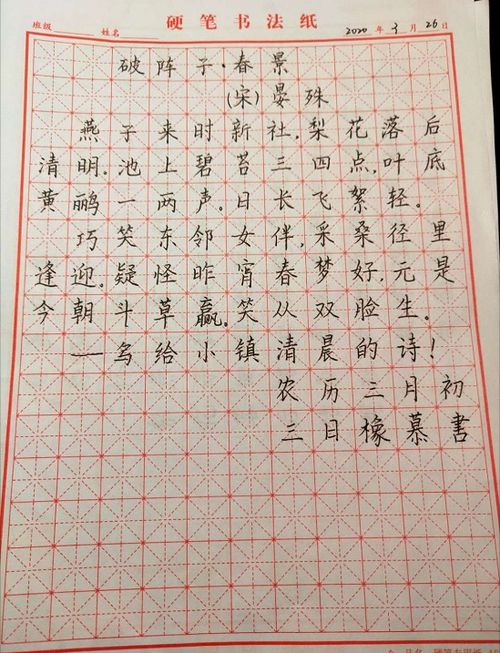 硬笔书法纸
班级 姓名 2020年3月26日
破阵子·春景
(宋)晏殊
燕子来时新社,梨花落后
清明。池上碧苔三四点,叶底
黄鹂一两声。日长飞絮轻。
巧笑东邻女伴,采桑径里
逢迎。疑怪昨宵春梦好,元是
今朝斗草赢。笑从双脸生。
——写给小镇清晨的诗!
农历三月初
三日橡慕書